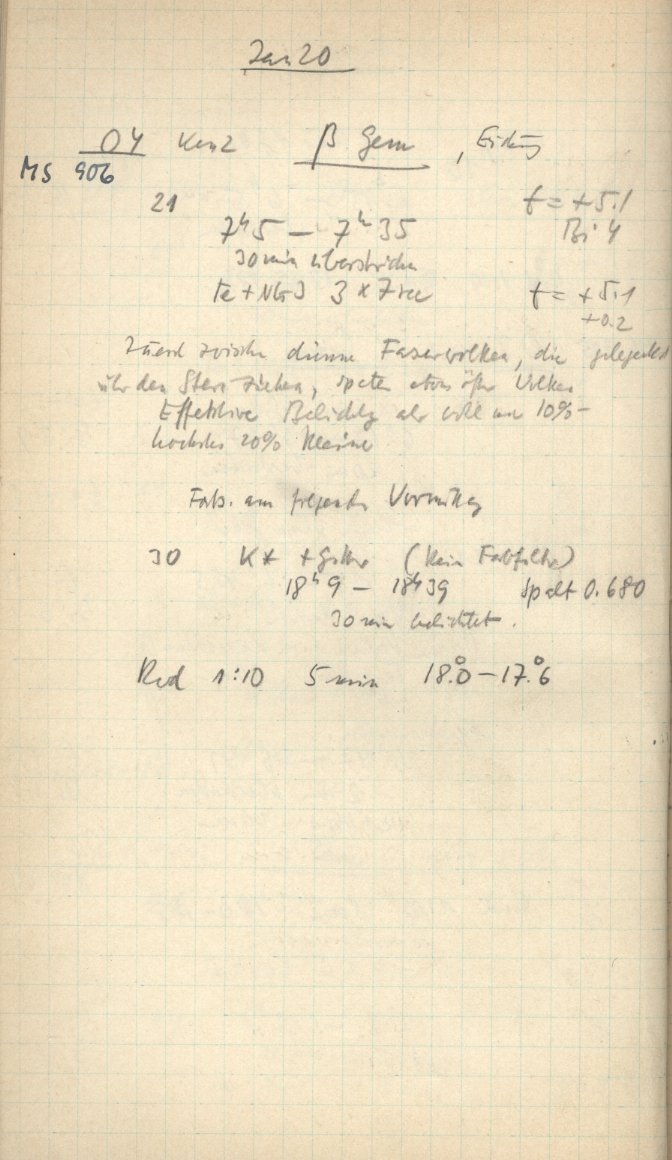 Jan 20
04 β Gem, Eichung
MS 906
21 t = +5.1
7h5 — 7h35 Bi 4
30 min überstrichen
Fe + 3 x 7 sec t = +5.1
+0.2
Zuerst dünne Faserwolken, die gelegentlich
über den Stern ziehen, später etwas Wolken
Effektive Belichtg 10%-
höchstes 20% kleiner
am folgenden Vormittag
30 K* + Gitter (kein Farbfilter)
18h9 — 18h39 Spalt 0.680
30 min belichtet.
Rod 1:10 5 min 18.°0 — 17.°6